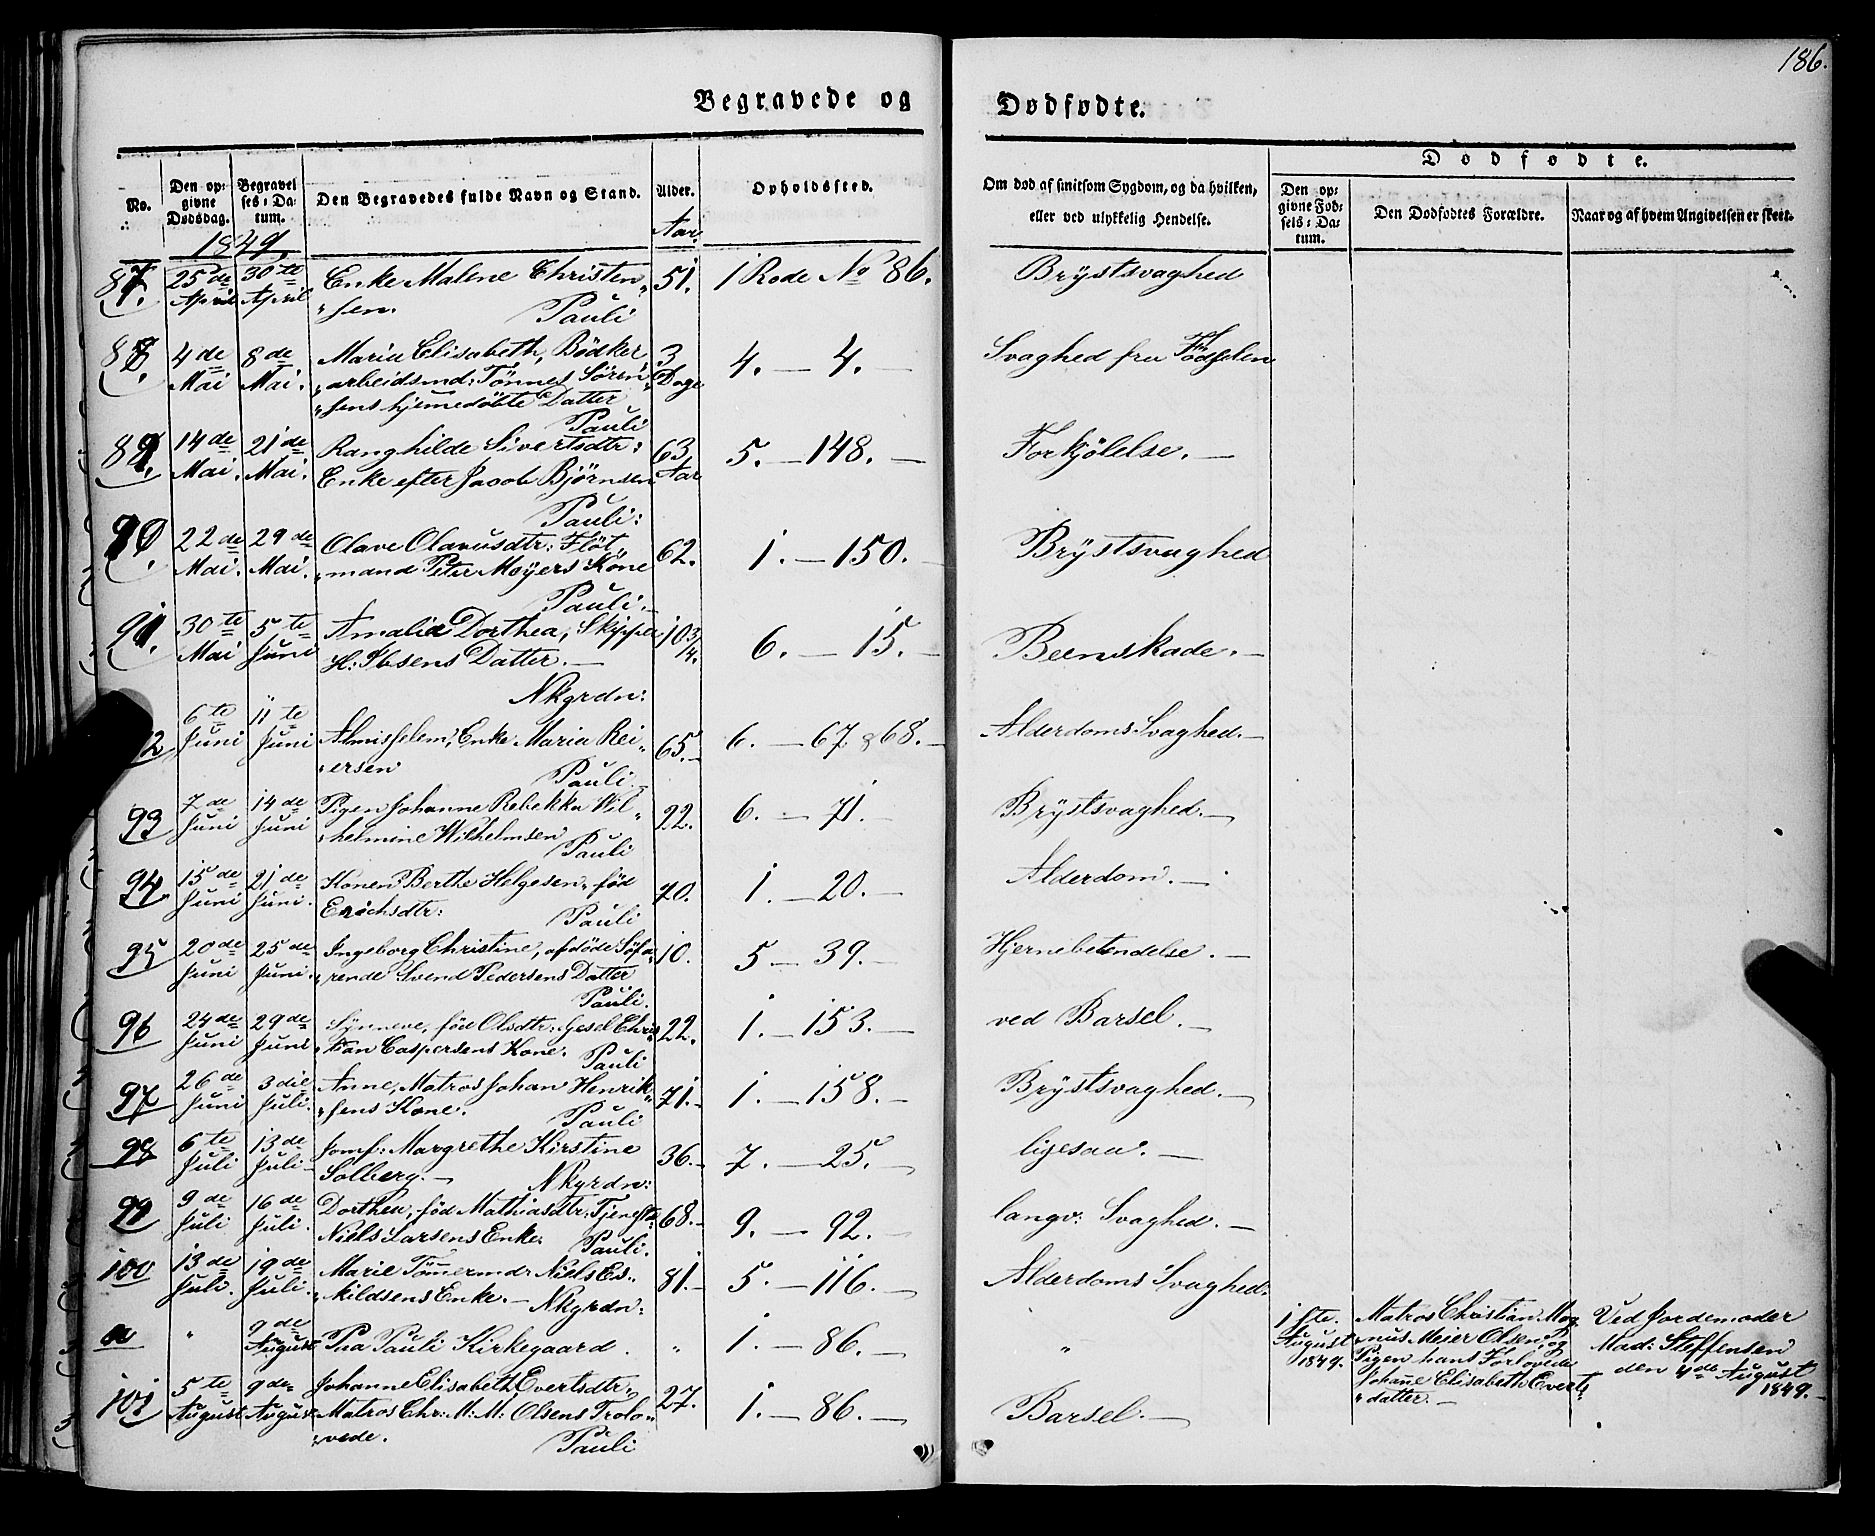 186.
Begravede og Dødfødte.
No.
Den opgivne Dødsdag.
Begravelses-Datum.
Den Begravedes fulde Navn og Stand.
Alder.
Opholdssted.
Om død af smitsom Sygdom, og da hvilken,
eller ved ulykkelig Hendelse.
Dødfødte.
Den opgivne Fødsels-Datum.
Den Dødfødtes Forældre.
Naar og af hvem Angivelsen er skeet.
1849
Aar
87. 25de April 30te April Enke Malene Christen„ 51. 1 Rode No 86. Brystsvaghed
„sen. Pauli
88. 4de Mai 8de Mai. Maria Elisabeth, Bödker 3 Dage 4. — 4. — Svaghed fra Födselen
„arbeidsmd: Tönnes Sören„
„sens hjemedöbte Datter
Pauli
89. 14de Mai. 21de Mai. Ranghilde Sivertsdtr: 63 Aar 5. — 148. — Forkjölelse. —
Enke efter Jacob Björnsen
Pauli:
90. 22de Mai. 29de Mai. Olave Olavusdtr: Flöt„ 62. 1. — 150. — Brystsvaghed
„mand Peter Meyers Kone
Pauli. —
91. 30te Mai 5te Juni Amalia Dorthea, Skipper 10 3/4. 6. — 15. — Beenskade. —
H: Ibsens Datter. —
Nkgrdn:
92 6te Juni 11te Juni Almisselem, Enke Maria Rei„ 65. — 6. — 67 & 68. — Alderdoms Svaghed. —
„ersen Pauli. —
93 7de Juni 14de Juni Pigen Johanne Rebekka Wil„ 22. 6. — 71. — Brystsvaghed. —
„helmine Wilhelmsen Pauli
94 15de Juni 21de Juni. Konen Berthe Helgesen, föd 70. 1. — 20. — Alderdom. —
Erichsdtr: Pauli
95 20de Juni 25de Juni. Ingeborg Christine, afdöde Söfa„ 10. 5 — 39. — Hjernebetendelse. —
„rende Svend Pedersens Datter
Pauli.
96 24de Juni 29de Juni Synneve, föd Olsdtr: Gesel Chris„ 22. 1. — 153. — ved Barsel. —
„tian Caspersens Kone. Pauli
97 26de Juni 3die Juli. Anne, Matros Johan Henrik„ 71. — 1. — 158. — Brystsvaghed. —
„sens Kone. Pauli
98 6te Juli 13de Juli — Jomf: Margrethe Kirstine 36. — 7. — 25. — ligesaa. —
Solberg. — Nkgrdn:
99 9de Juli 16de Juli. Dorthea, föd Mathiasdtr: Tjenest: 68. — 9. — 92. — langv: Svaghed. —
Niels Larsens Enke. Pauli.
100 13de Juli. 19de Juli. Marie Tömermd: Niels Es„ 81. — 5. — 116. — Alderdoms Svaghed.
„kildsens Enke. — Nkgrdn:
a „ 9de August Paa Pauli Kirkegaard. „ 1. — 86. — „
1ste. August 1849.
Matros Christian Mag„
„nus Meier Olsen og
Pigen hans Forlovede
Johanne Elisabeth Everts„
„datter. —
Ved Jordemoder
Mad: Steffensen
den 4de August
1849. —
101 5te August 9de August Johanne Elisabeth Evertsdtr: 27. 1. — 86. — Barsel. —
Matros Chr: M: M: Olsens Trolo„
„vede. Pauli